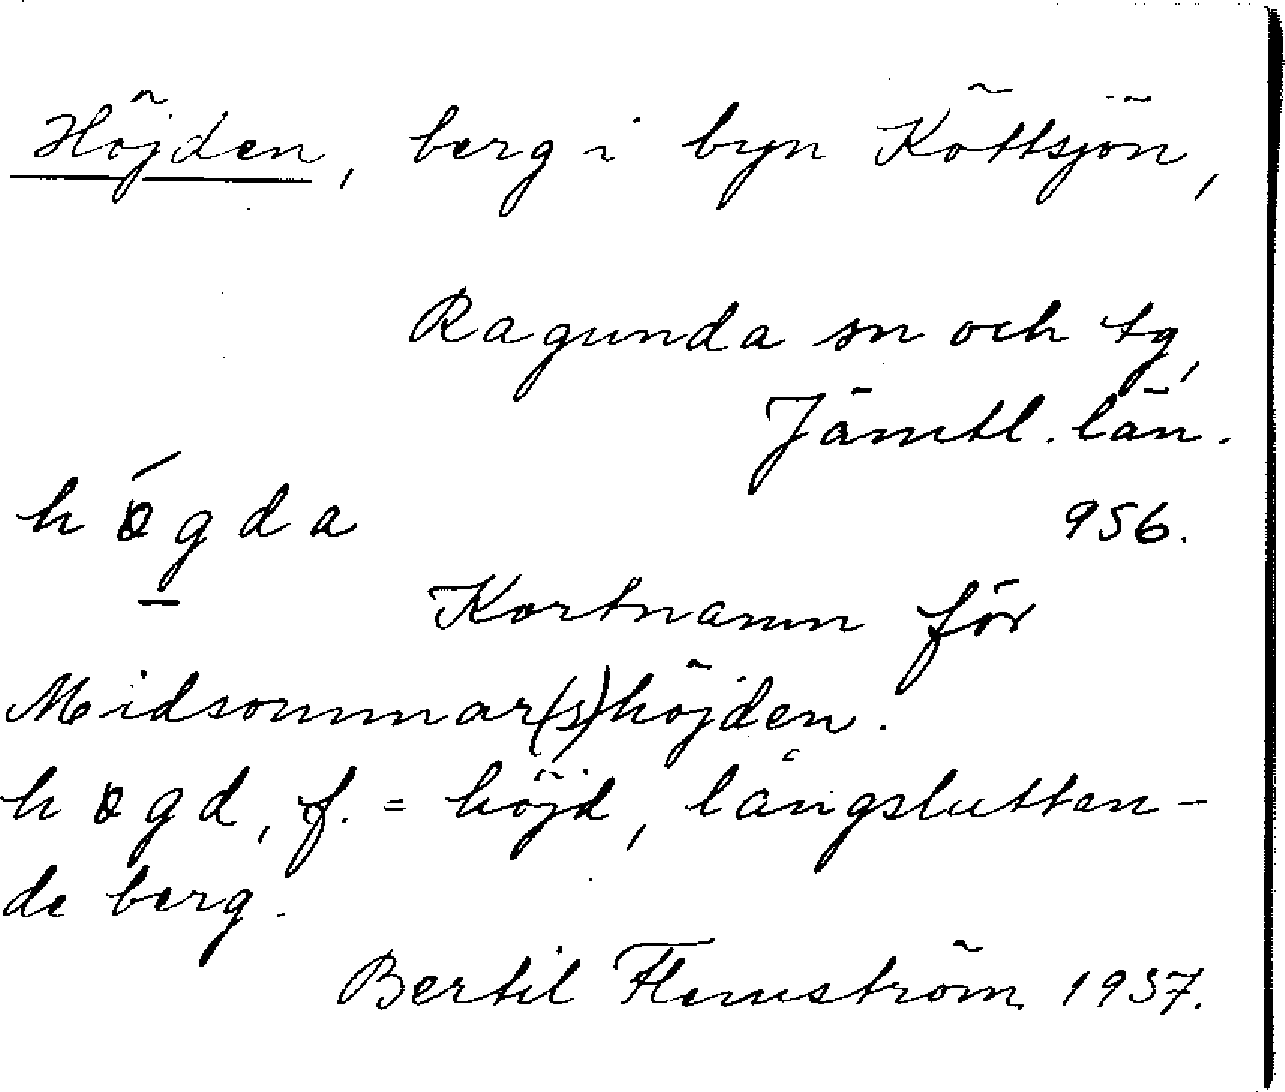 Höjden, berg i byn Köttsjön,
Ragunda sn och tg,
Jämtl. län.
hǿgda 956.
Kortnamn för
Midsommar(s)höjden.
høgd, f. = höjd, långslutten-
de berg.
Bertil Flemström 1937.